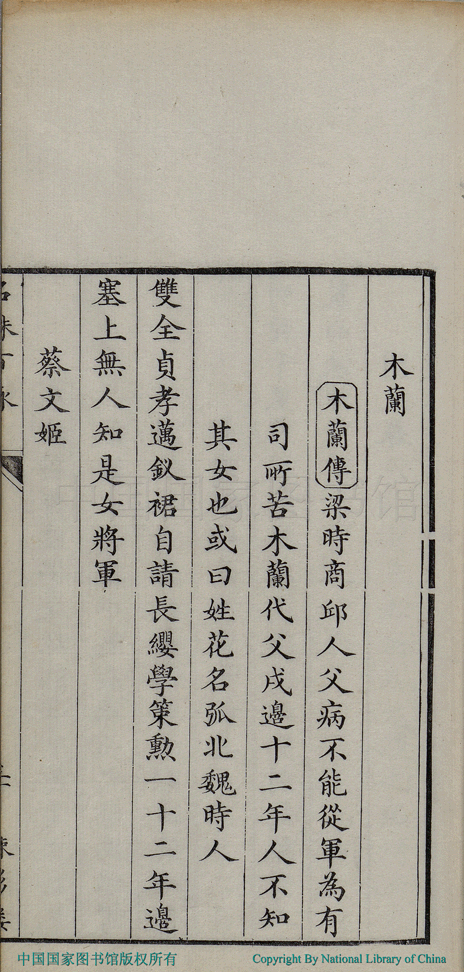 木蘭
木蘭傳梁時商邱人父病不能從軍為有
司所苦木蘭代父戍邊十二年人不知
其女也或曰姓花名弧北魏時人
雙全貞孝邁釵裙自請長纓學策勳一十二年邊
塞上無人知是女將軍
蔡文姬
中国国家图书馆版权所有
Copyright By National Library of China